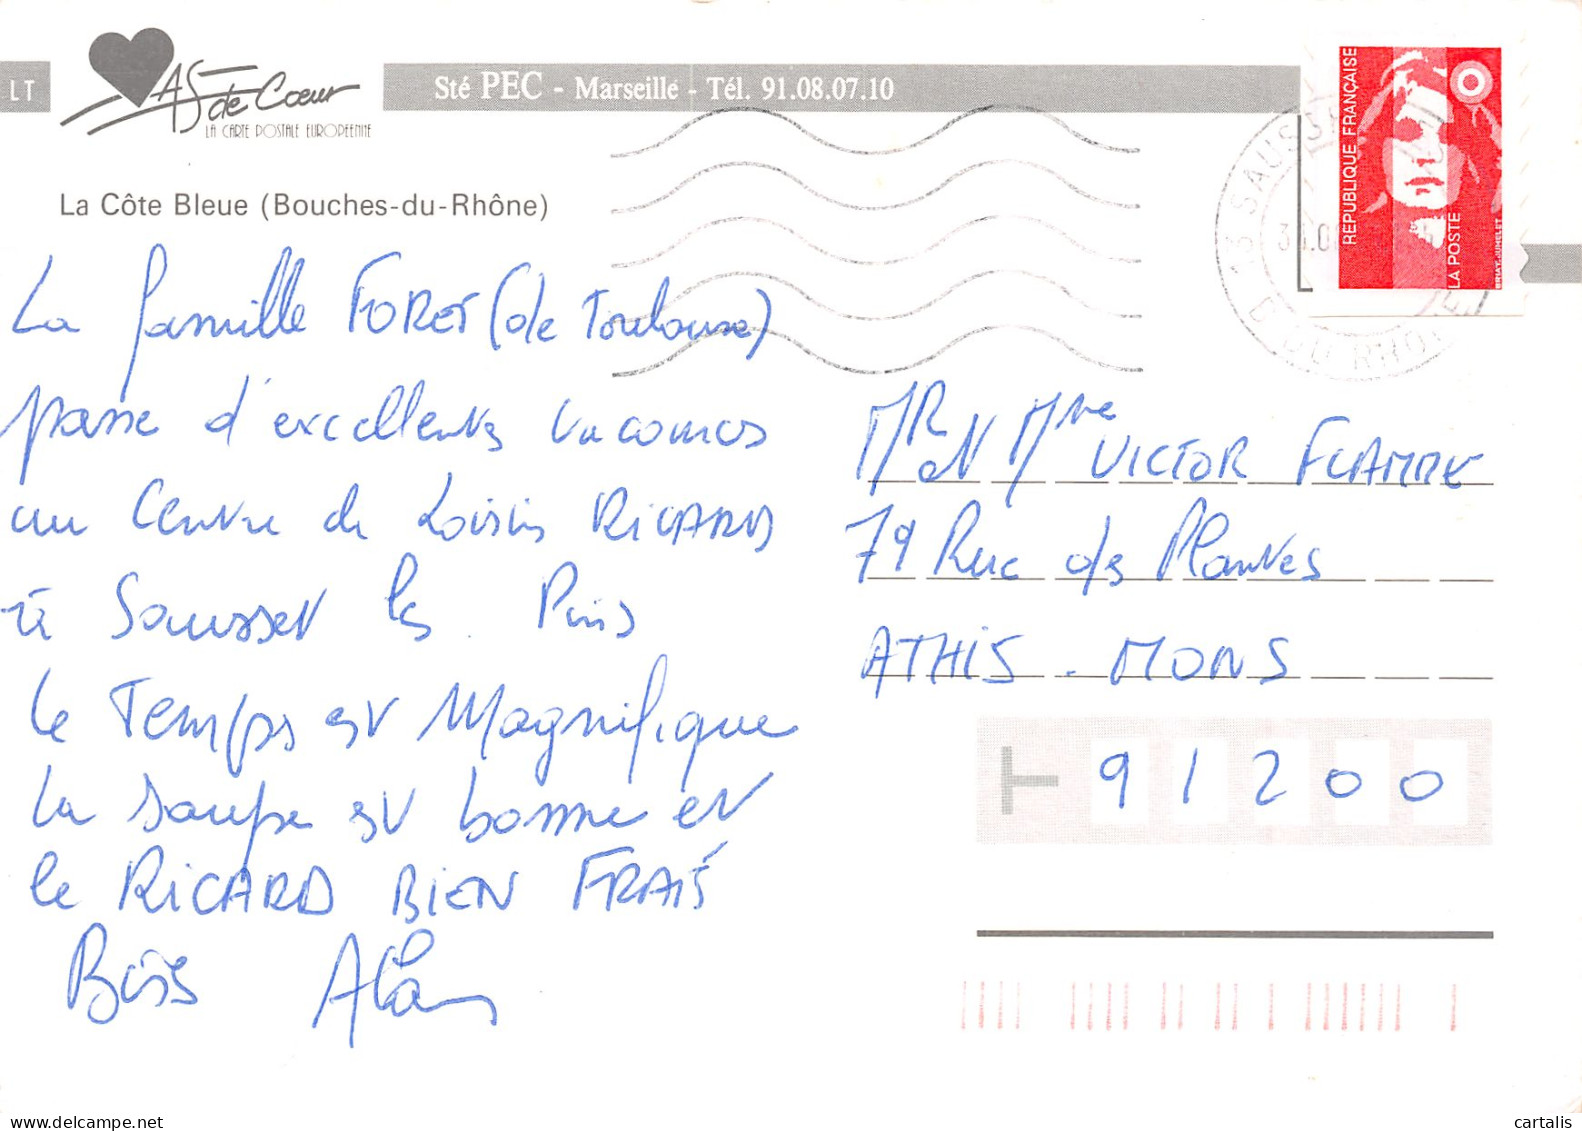 LT
AS de Cœur
LA CARTE POSTALE EUROPEENNE
Sté PEC - Marseille - Tél. 91.08.07.10
La Côte Bleue (Bouches-du-Rhône)
REPUBLIQUE FRANÇAISE
LA POSTE
BRIAT-JUMELET
13 SAUSS
B DU RHONE
La famille FORET (de Toulouse)
passe d'excellentes vacances
au Centre de Loisirs RICARD
à Sausset les Pins
Le Temps est Magnifique
La soupe est bonne et
le RICARD BIEN FRAIS
Bises Alain
MR et Mme VICTOR FLAMME
79 Rue des Plantes
ATHIS-MONS
91200
cartalis